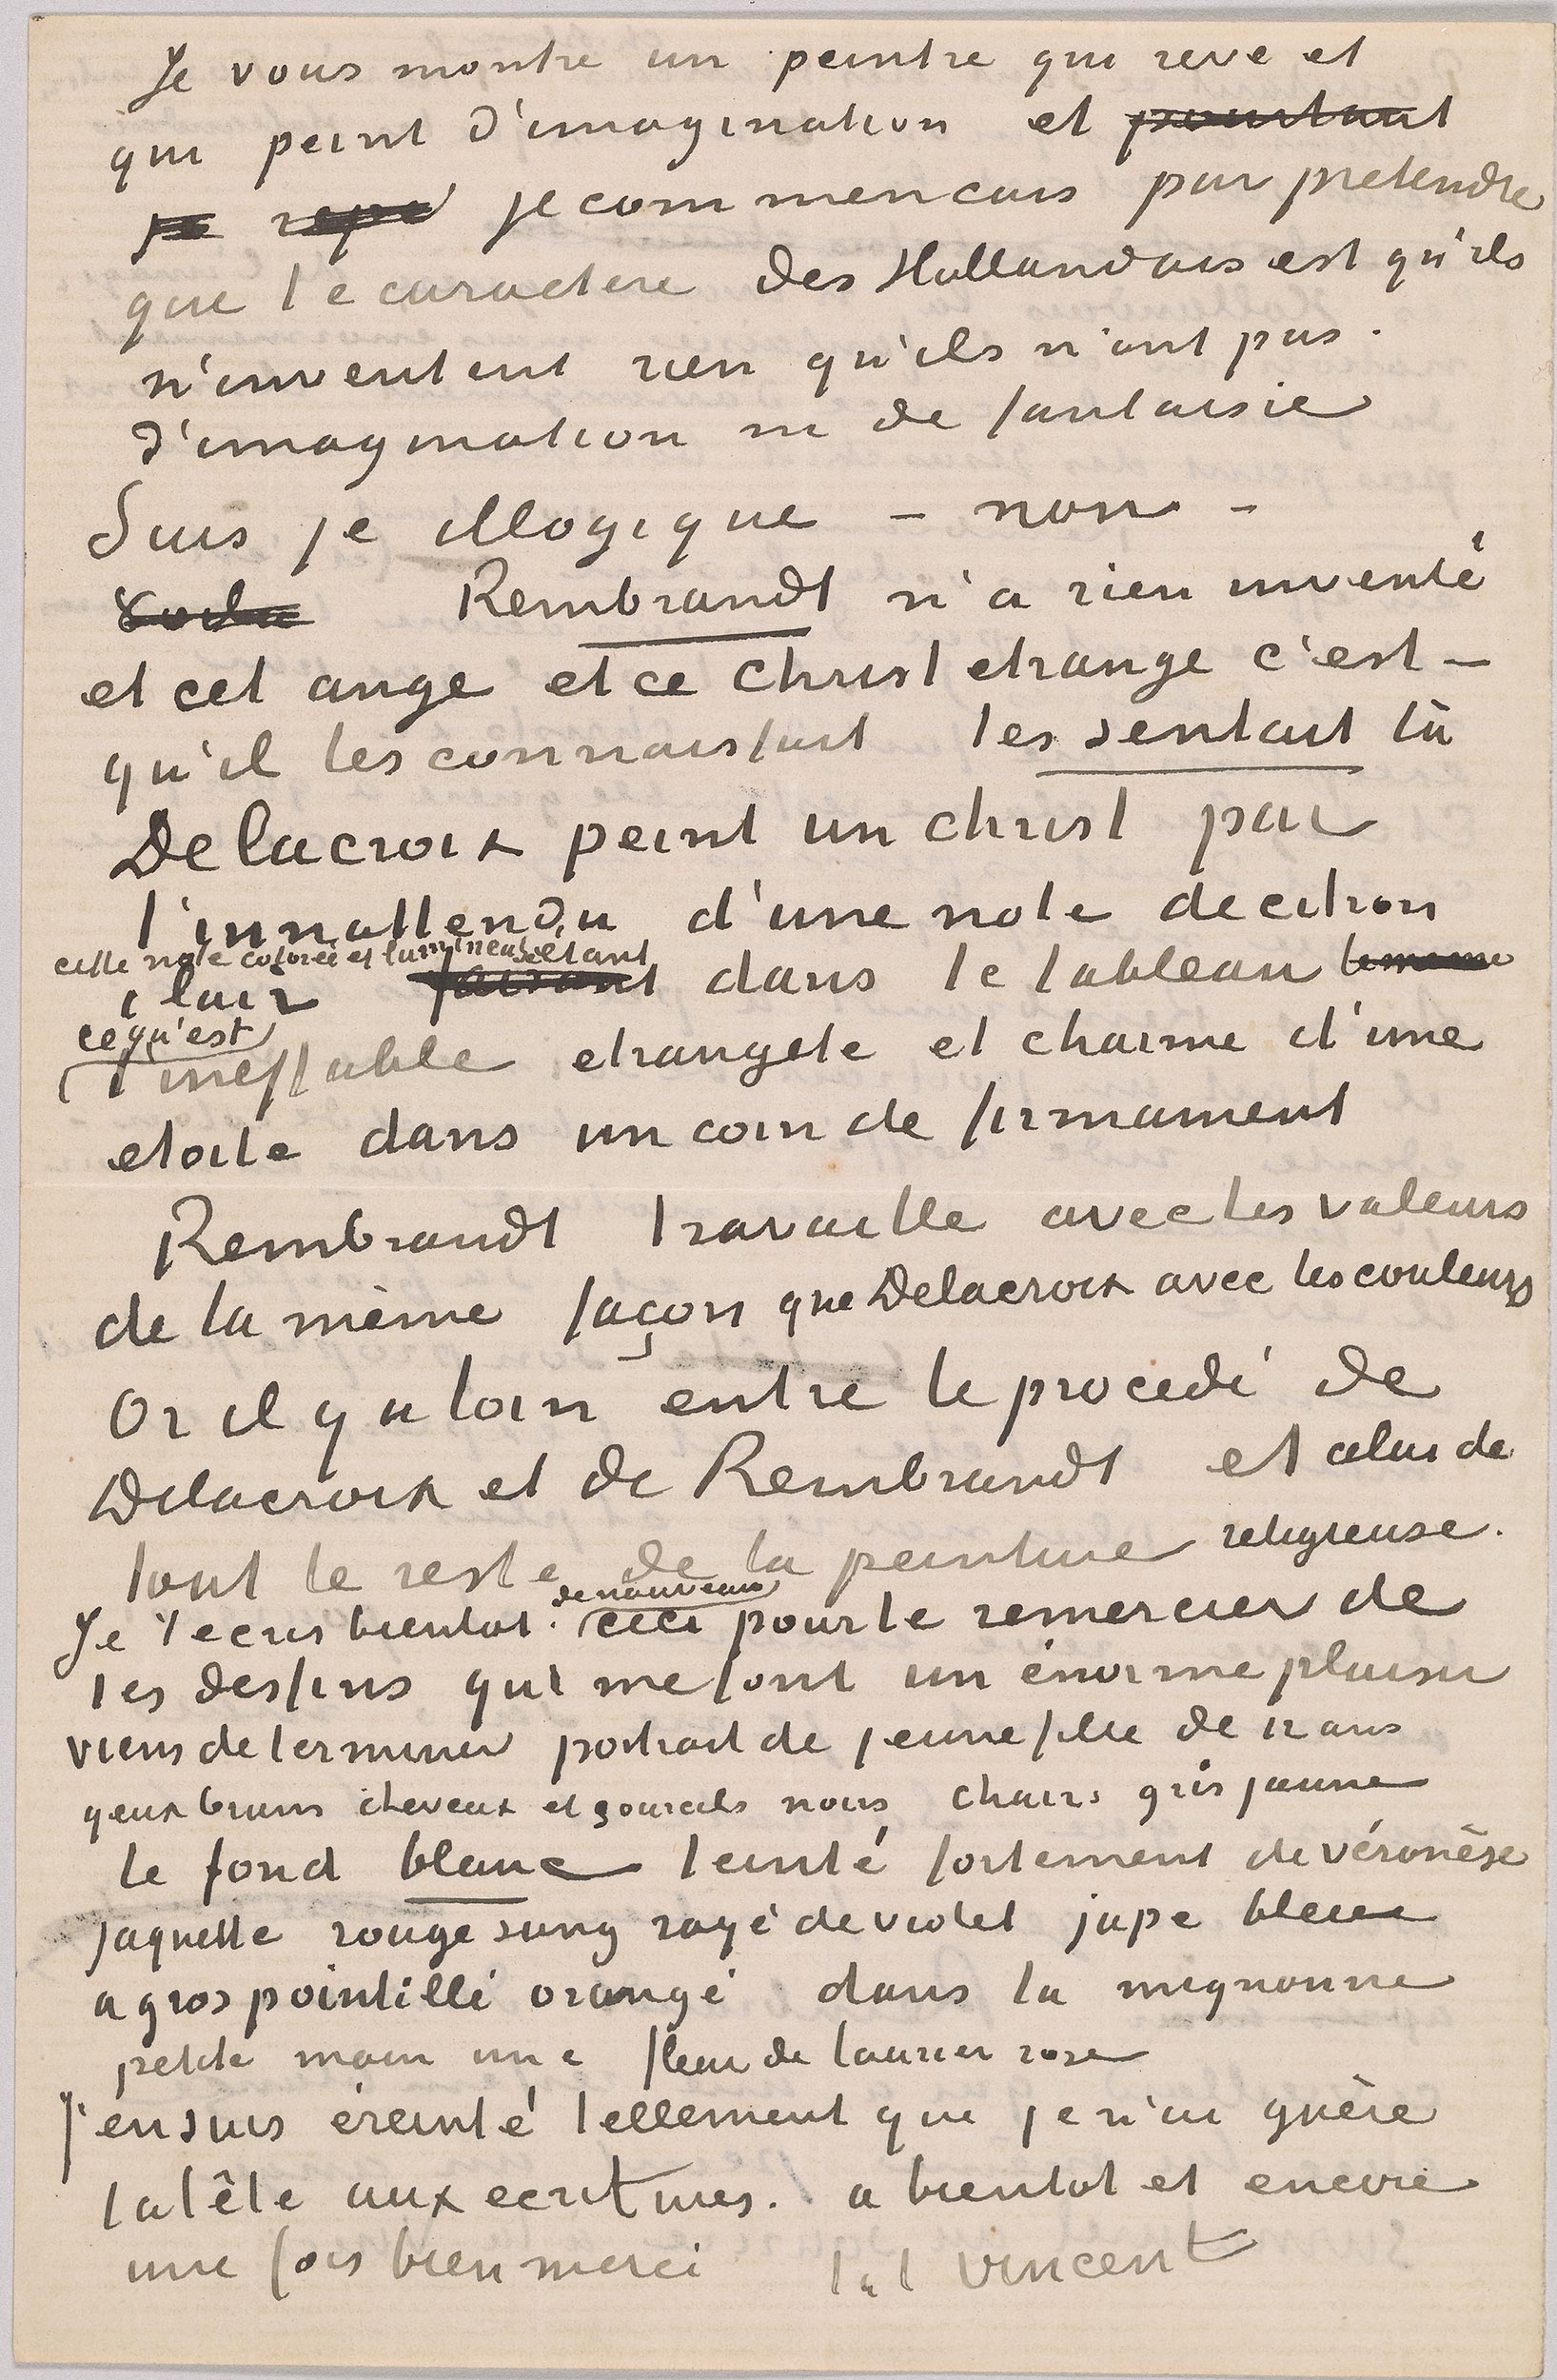 Je vous montre un peintre qui reve et
qui peint d'imagination et pourtant
je repe je commencais par pretendre
que le caractere des Hollandais est qu'ils
n'inventent rien qu'ils n'ont pas
d'imagination ni de fantaisie
Suis je illogique – non –
Voila Rembrandt n'a rien inventé
et cet ange et ce Christ etrange c'est –
qu'il les connaissait les sentait là
Delacroix peint un christ par
l'innattendu d'une note de citron
cette note colorée et lumineuse étant
clair faisant dans le tableau
ce qu'est
l'ineffable etrangete et charme d'une
etoile dans un coin de firmament
Rembrandt travaille avec les valeurs
de la même façon que Delacroix avec les couleurs
Or il y a loin entre le procedé de
Delacroix et de Rembrandt et celui de
tout le reste de la peinture religieuse.
de nouveau
Je t'ecris bientot. ceci pour te remercier de
tes dessins qui me font un énorme plaisir
viens de terminer portrait de jeune fille de 12 ans
yeux bruns cheveux et sourcils noirs chairs gris jaune
le fond blanc teinté fortement de véronèse
jaquette rouge sang rayé de violet jupe bleue
a gros pointillé orangé dans la mignonne
petite main une fleur de laurier rose
J'en suis éreinté tellement que je n'ai guère
la tête aux ecritures. a bientot et encore
une fois bien merci t. à t. Vincent